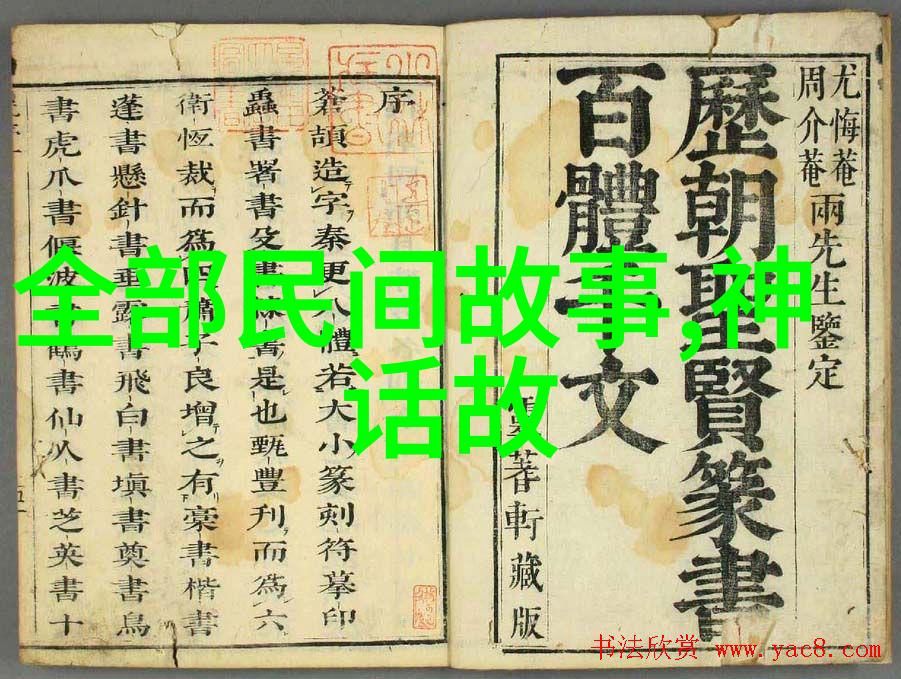 尤悔菴
周介菴
兩先生鑒定
歷朝聖賢篆書
百體千文
藏版
序
蒼頡造字秦更八體若大小篆刻符摹印
蟲書署書殳書隸書是也甄豐刊而爲六
衛恆裁而爲四蕭子良增之有藁書楷書
蓬書懸針書垂露書飛白書塡書奠書鳥
書虎爪書偃波書鶴書仙人書芝英書十
全部民间故事,神
话故
书法欣赏 www.yac8.com